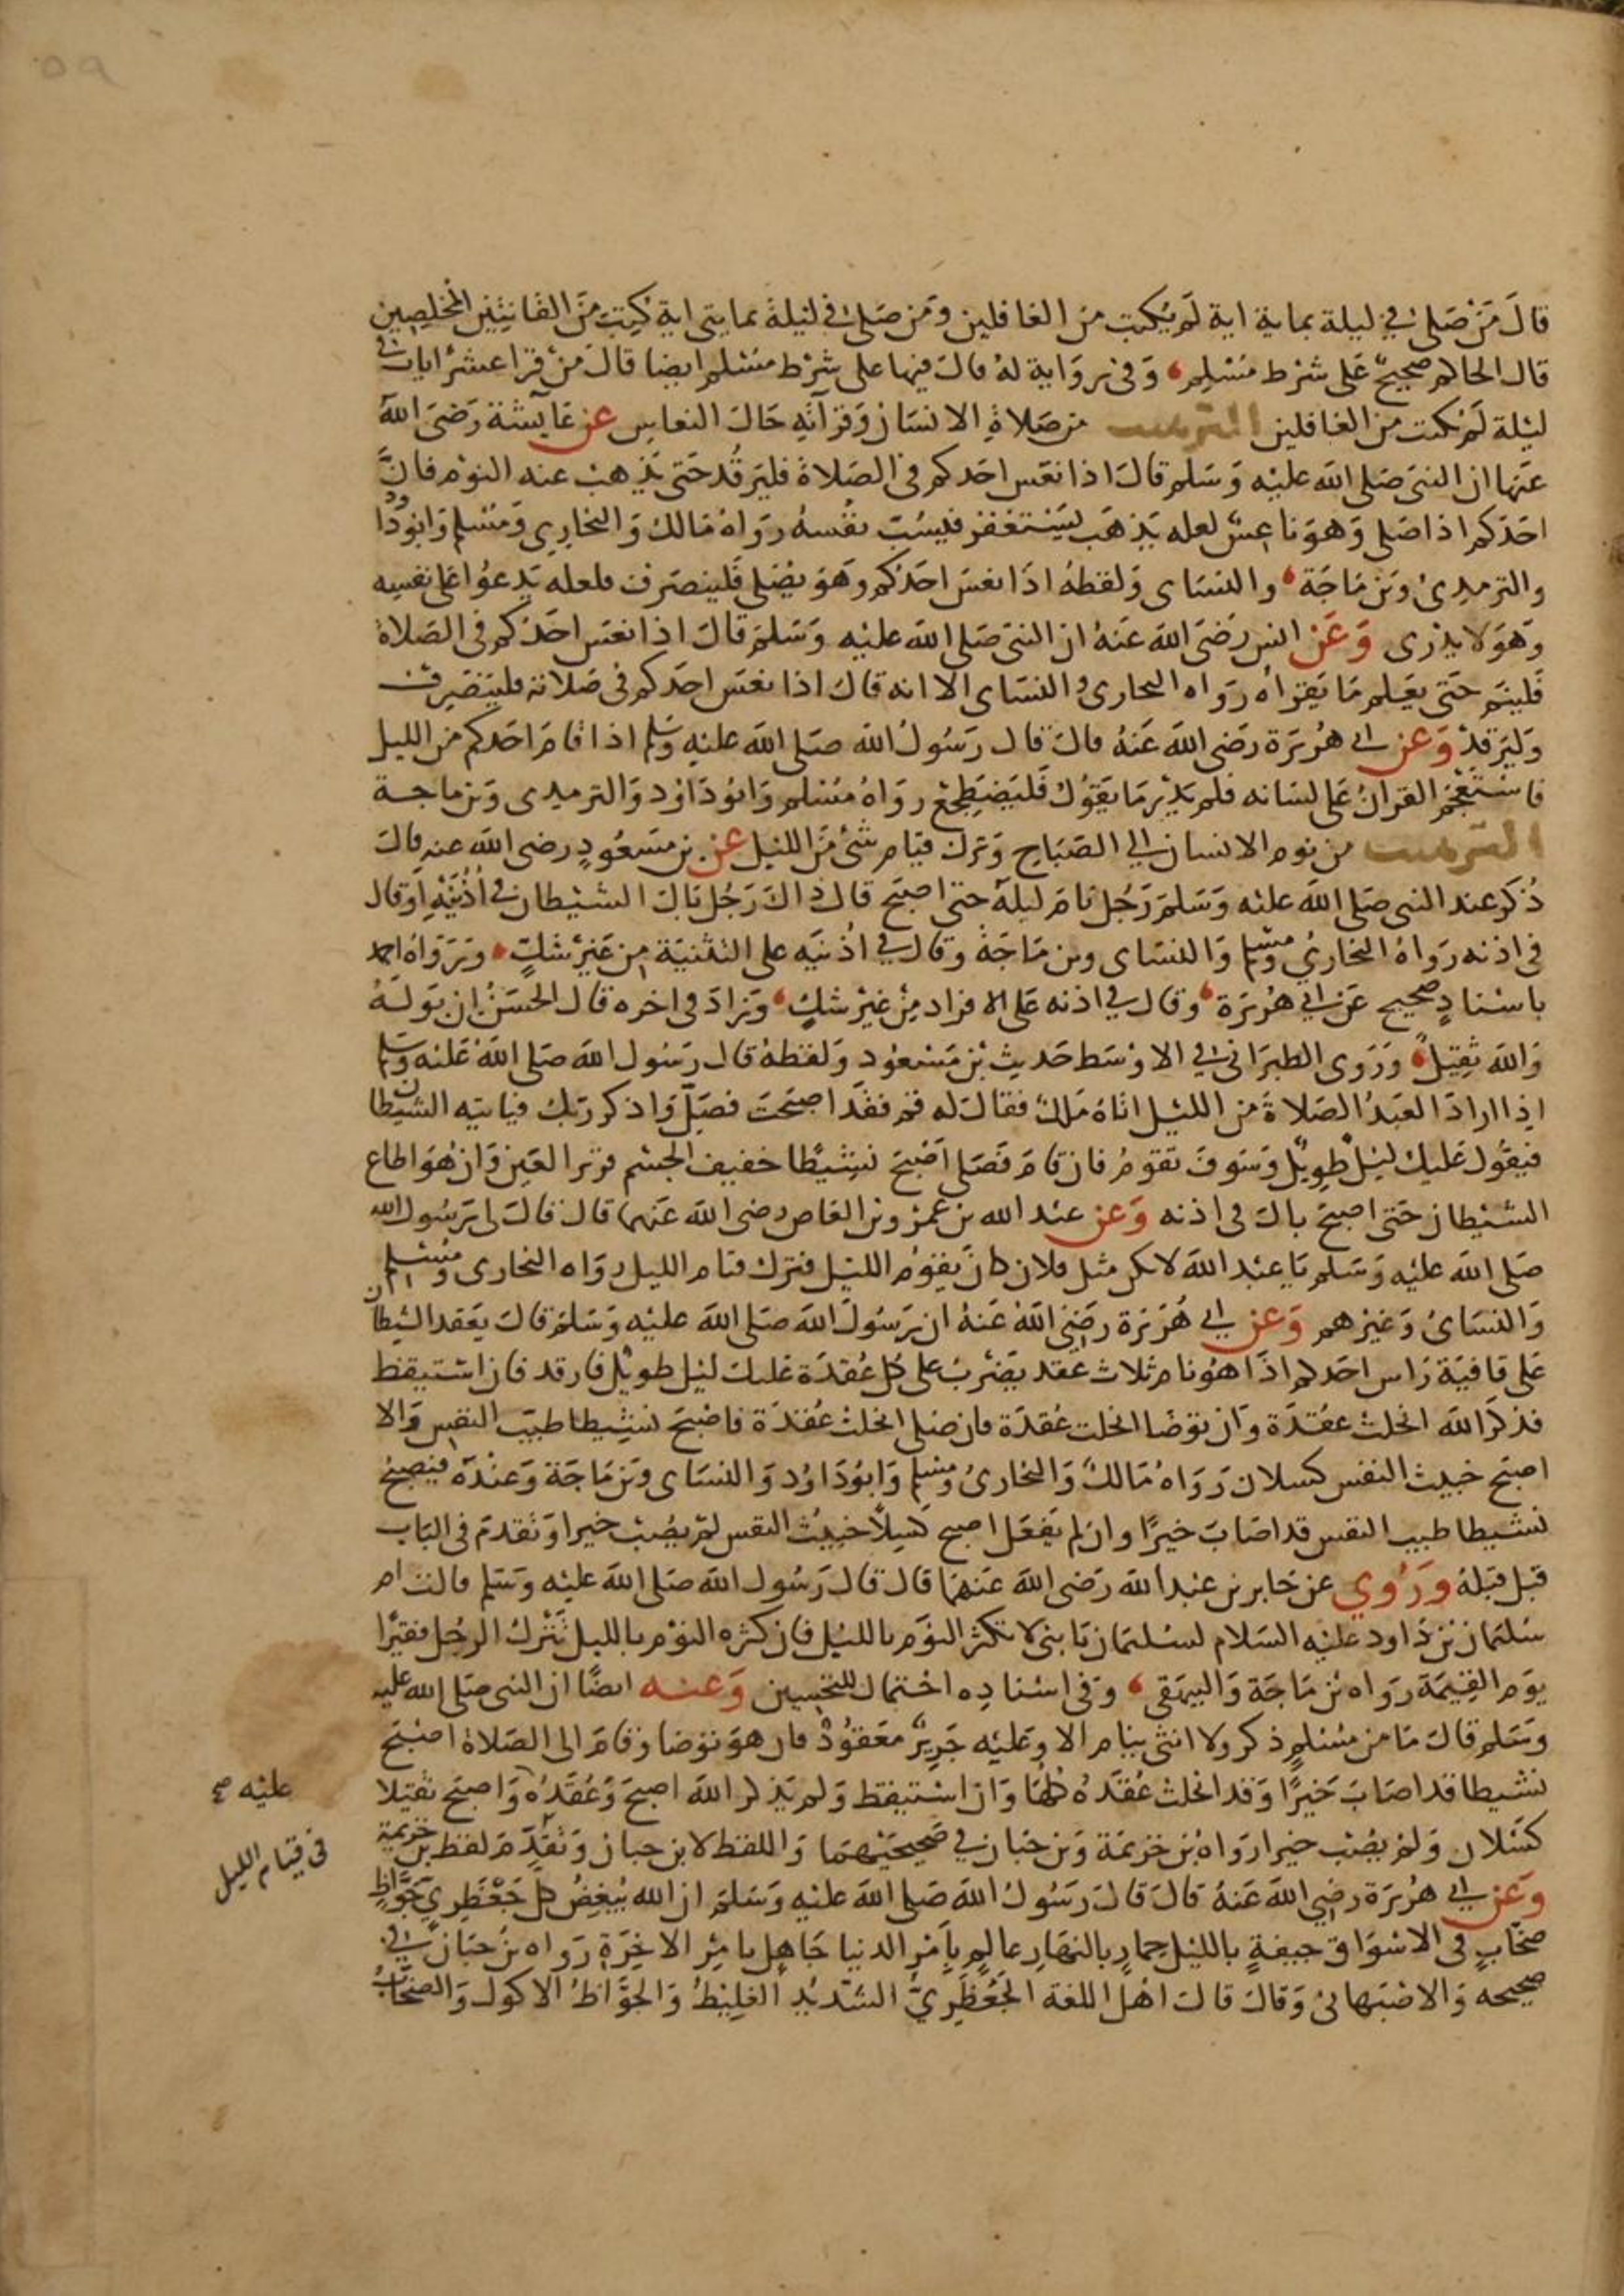 ٥٩
قال من صلى في ليلة بماية اية لم يكتب من الغافلين ومن صلى في ليلة بمايتي اية كتب من القانتين المخلصين
قال الحاكم صحيح على شرط مسلم، وفي رواية له قال فيها على شرط مسلم ايضا قال من قرا عشر ايات في
ليلة لم يكتب من الغافلين الترهيب من صلاة الانسان وقرآته حال النعاس عن عآيشة رضى الله
عنها ان النبى صلى الله عليه وسلم قال اذا نعس احدكم فى الصلاة فليرقد حتى يذهب عنه النوم فان
احدكم اذا صلى وهو ناعس لعله يذهب يستغفر فيسب نفسه رواه مالك والبخاري ومسلم وابوداود
والترمدى وبن ماجة، والنساى ولفظه اذا نعس احدكم وهو يصلى فلينصرف فلعله يدعوا على نفسه
وهو لا يدرى وعن انس رضى الله عنه ان النبى صلى الله عليه وسلم قال اذا نعس احدكم فى الصلاة
فلينم حتى يعلم ما يقراه رواه البخارى والنساى الا انه قال اذا نعس احدكم فى صلاته فلينصرف
وليرقد وعن ابي هريرة رضى الله عنه قال قال رسول الله صلى الله عليه وسلم اذا قام احدكم من الليل
فاستعجم القران على لسانه فلم يدر ما يقول فليضطجع رواه مسلم وابوداود والترمدى وبن ماجة
الترهيب من نوم الانسان الي الصباح وترك قيام شئ من الليل عن بن مسعود رضى الله عنه قال
ذكر عند النبى صلى الله عليه وسلم رجل نام ليلة حتى اصبح قال ذاك رجل بال الشيطان في اذنيه او قال
فى اذنه رواه البخاري ومسلم والنساى وبن ماجة وقال في اذنيه على التثنية من غير شك، ورواه احمد
باسناد صحيح عن ابي هريرة، وقال في اذنه على الافراد من غير شك، وزاد فى اخره قال الحسن ان بوله
والله ثقيل، وروى الطبرانى في الاوسط حديث بن مسعود ولفظه قال رسول الله صلى الله عليه وسلم
اذا اراد العبد الصلاة من الليل اتاه ملك فقال له قم فقد اصبحت فصل واذكر ربك فياتيه الشيطان
فيقول عليك ليل طويل وسوف تقوم فان قام فصلى اصبح نشيطا خفيف الجسم قرير العين وان هو اطاع
الشيطان حتى اصبح بال فى اذنه وعن عبد الله بن عمرو بن العاص رضى الله عنهما قال قال لى رسول الله
صلى الله عليه وسلم يا عبد الله لا تكن مثل فلان كان يقوم الليل فترك قيام الليل رواه البخارى ومسلم
والنساى وغيرهم وعن ابي هريرة رضي الله عنه ان رسول الله صلى الله عليه وسلم قال يعقد الشيطان
على قافية راس احدكم اذا هو نام ثلاث عقد يضرب على كل عقدة عليك ليل طويل فارقد فان استيقظ
فذكر الله انحلت عقدة وان توضا انحلت عقدة فان صلى انحلت عقدة فاصبح نشيطا طيب النفس والا
اصبح خبيث النفس كسلان رواه مالك والبخارى ومسلم وابوداود والنساى وبن ماجة وعنده فيصبح
نشيطا طيب النفس قد اصاب خيرا وان لم يفعل اصبح كسلا خبيث النفس لم يصب خيرا وتقدم فى الباب
قبل قبله وروي عن جابر بن عبد الله رضى الله عنهما قال قال رسول الله صلى الله عليه وسلم قالت ام
سليمان بن داود عليه السلام لسليمان يا بنى لا تكثر النوم بالليل فان كثره النوم بالليل تترك الرجل فقيرا
يوم القيمة رواه بن ماجة والبيهقى، وفى اسناده احتمال للتحسين وعنه ايضا ان النبى صلى الله عليه
وسلم قال ما من مسلم ذكر ولا انثى ينام الا وعليه جرير معقود فان هو توضا وقام الى الصلاة اصبح
نشيطا قد اصاب خيرا وقد انحلت عقده كلها وان استيقظ ولم يذكر الله اصبح وعقده واصبح ثقيلا
عليه صح
كسلان ولم يصب خيرا رواه بن خزيمة وبن حبان في صحيحيهما واللفظ لابن حبان وتقدم لفظ بن خزيمة
فى قيام الليل
وعن ابي هريرة رضي الله عنه قال قال رسول الله صلى الله عليه وسلم ان الله يبغض كل جعظري جواظ
صخاب فى الاسواق جيفة بالليل حمار بالنهار عالم بامر الدنيا جاهل بامر الاخرة رواه بن حبان في
صحيحه والاصبهانى وقال قال اهل اللغة الجعظري الشديد الغليظ والجواظ الاكول والصخاب